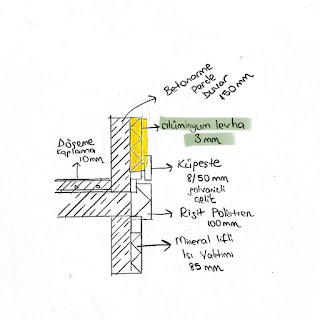 Betonarme
Perde
Duvar
150 mm
alüminyum levha
3 mm
Döşeme
Kaplama
10 mm
Küpeşte
8/50 mm
galvanizli
çelik
Rijit Polistren
100 mm
Mineral lifli
Isı Yalıtımı
85 mm